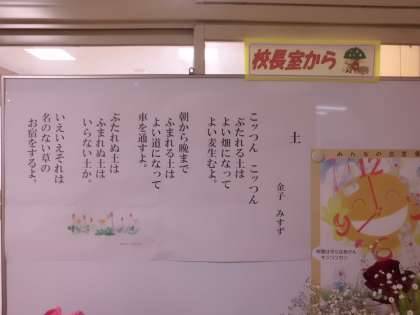 校長室から
土
金子 みすず
こッつん こッつん
ぶたれる土は
よい畑になって
よい麦生むよ。
朝から晩まで
ふまれる土は
よい道になって
車を通すよ。
ぶたれぬ土は
ふまれぬ土は
いらない土か。
いえいえそれは
名のない草の
お宿をするよ。